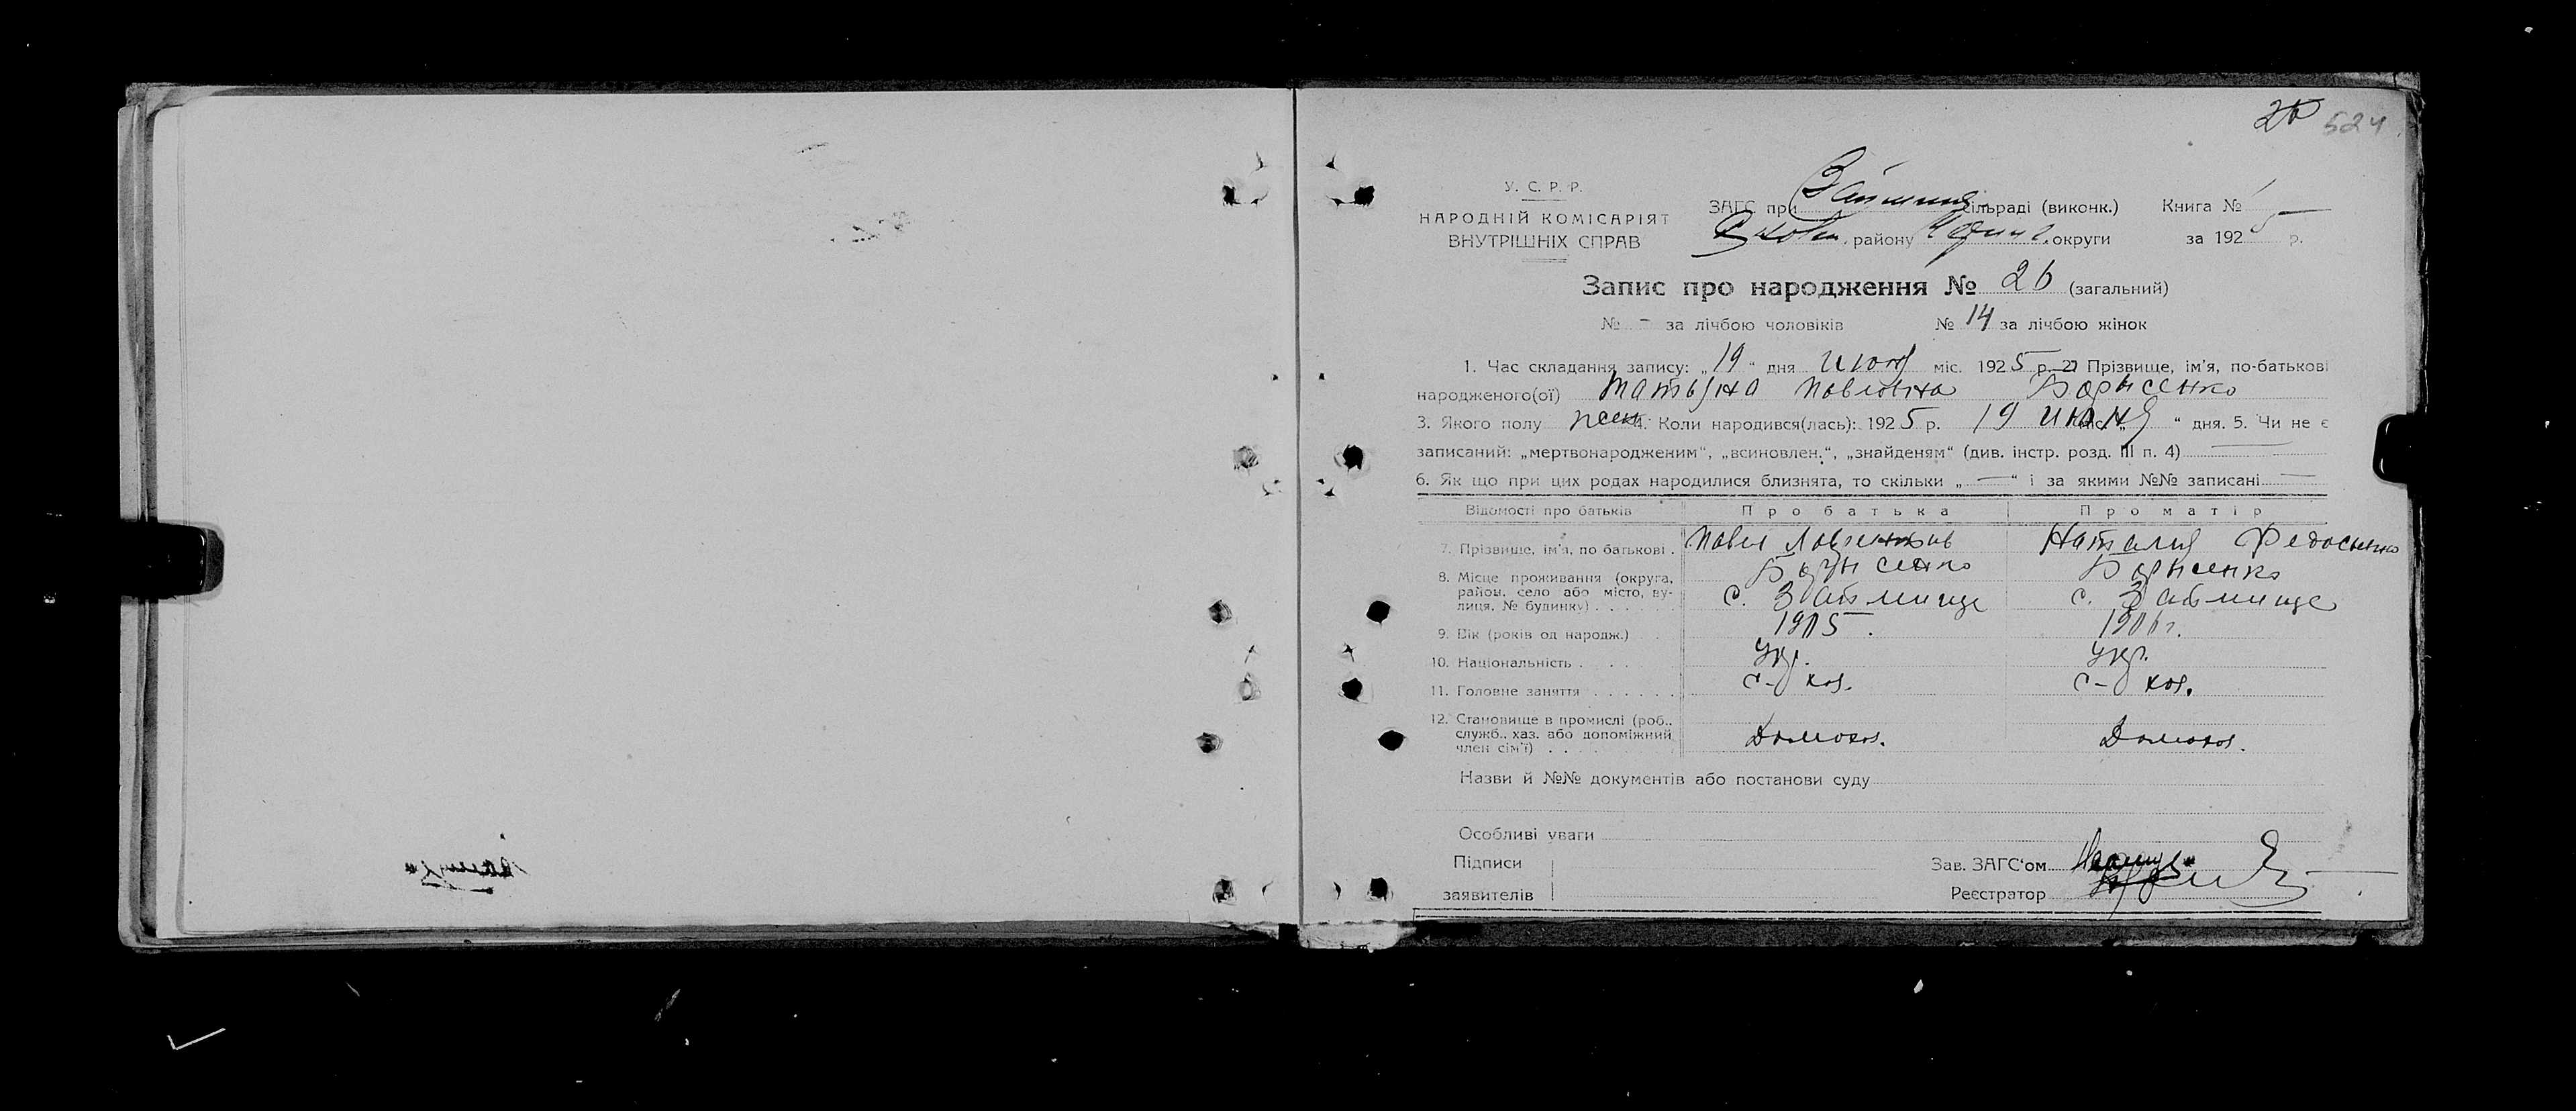 26 524
У. С. Р. Р.
НАРОДНІЙ КОМІСАРІЯТ
ВНУТРІШНІХ СПРАВ
ЗАГС при сільраді (виконк.) Книга № 1
району округи за 1925 р.
Запис про народження № 26 (загальний)
№ - за лічбою чоловіків № 14 за лічбою жінок
1. Час складання запису: „19“ дня міс. 1925 р. 2) Прізвище, ім'я, по-батькові
народженого(ої) Татьяна Павловна Борисенко
3. Якого полу жен. 4. Коли народився(лась): 1925 р. 19 июня міс. „ “ дня. 5. Чи не є
записаний: „мертвонародженим“, „всиновлен.“, „знайденям“ (див. інстр. розд. III п. 4) —
6. Як що при цих родах народилися близнята, то скільки „—“ і за якими №№ записані —
Відомості про батьків Про батька Про матір
7. Прізвище, ім'я, по батькові . Павел Наталия
Борисенко Борисенко
8. Місце проживання (округа, район, село або місто, вулиця, № будинку) . . . . . с. Займище с. Займище
9. Вік (років од народж.) . . 1905. 1906 г.
10. Національність . . . . Укр. Укр.
11. Головне заняття . . . . . . с-хоз. с-хоз.
12. Становище в промислі (роб., служб., хаз. або допоміжний член сім'ї) . . Домохоз. Домохоз.
Назви й №№ документів або постанови суду
Особливі уваги
Підписи Зав. ЗАГС'ом
заявителів Реєстратор